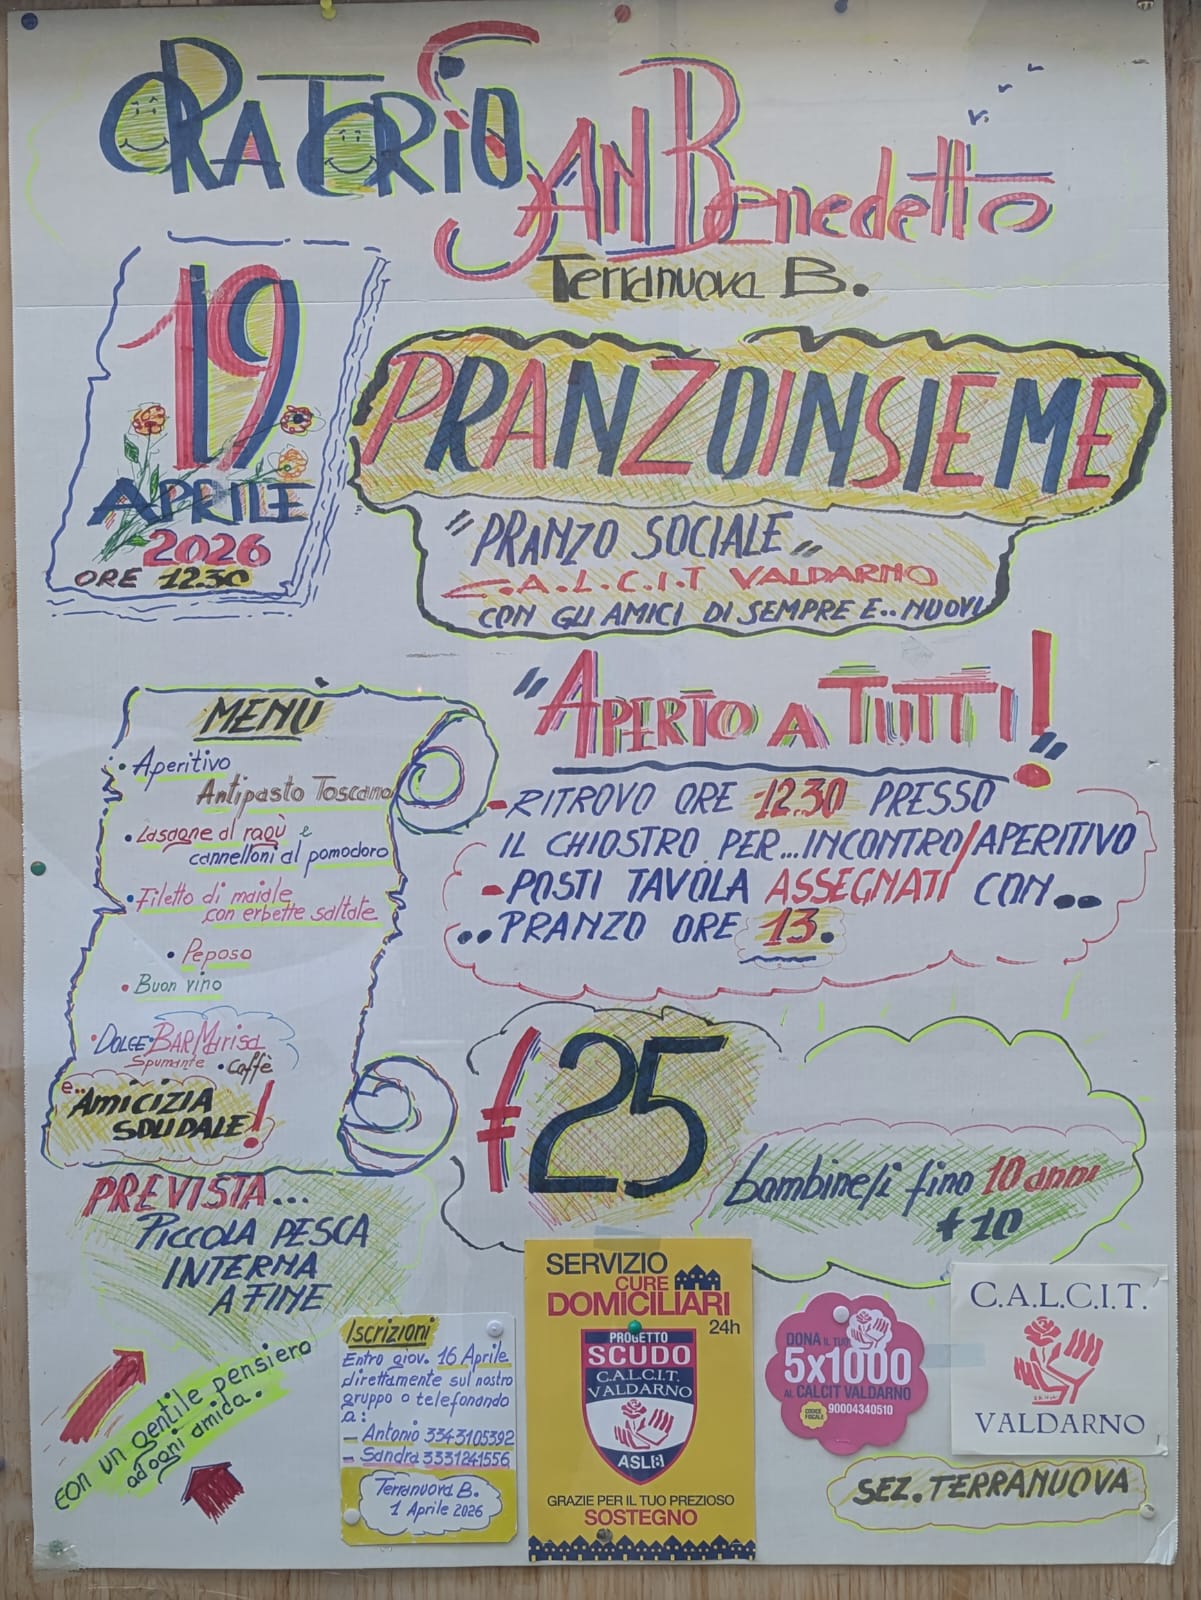 ORATORIO
SAN Benedetto
Terranuova B.
19
APRILE
2026
ORE 12.30
PRANZOINSIEME
"PRANZO SOCIALE"
C.A.L.C.I.T VALDARNO
CON GLI AMICI DI SEMPRE E.. NUOVI
"APERTO A TUTTI!"
- RITROVO ORE 12.30 PRESSO
IL CHIOSTRO PER...INCONTRO/APERITIVO
- POSTI TAVOLA ASSEGNATI CON..
..PRANZO ORE 13.
MENÙ
• Aperitivo
Antipasto Toscano
• Lasagne al ragù e
cannelloni al pomodoro
• Filetto di maiale
con erbette saltate
• Peposo
• Buon vino
• DOLCE • BAR Marisa
Spumante • Caffè
e.. AMICIZIA
SOLIDALE!
€ 25
bambine/i fino 10 anni
€ 10
PREVISTA...
PICCOLA PESCA
INTERNA
A FINE
con un gentile pensiero
ad ogni amida.
Iscrizioni
Entro giov. 16 Aprile
direttamente sul nostro
gruppo o telefonando
a:
- Antonio 3343105392
- Sandra 3331241556
Terranuova B.
1 Aprile 2026
SERVIZIO
CURE
DOMICILIARI
24h
PROGETTO
SCUDO
C.A.L.C.I.T.
VALDARNO
ASL8
GRAZIE PER IL TUO PREZIOSO
SOSTEGNO
DONA IL TUO
5x1000
AL CALCIT VALDARNO
CODICE
FISCALE
90004340510
C.A.L.C.I.T.
VALDARNO
SEZ. TERRANUOVA